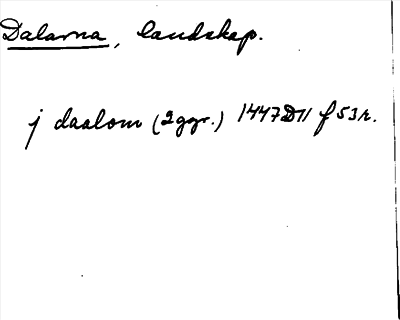 Dalarna, landskap.
j daalom (2 ggr.) 1447 D11 f 53r.